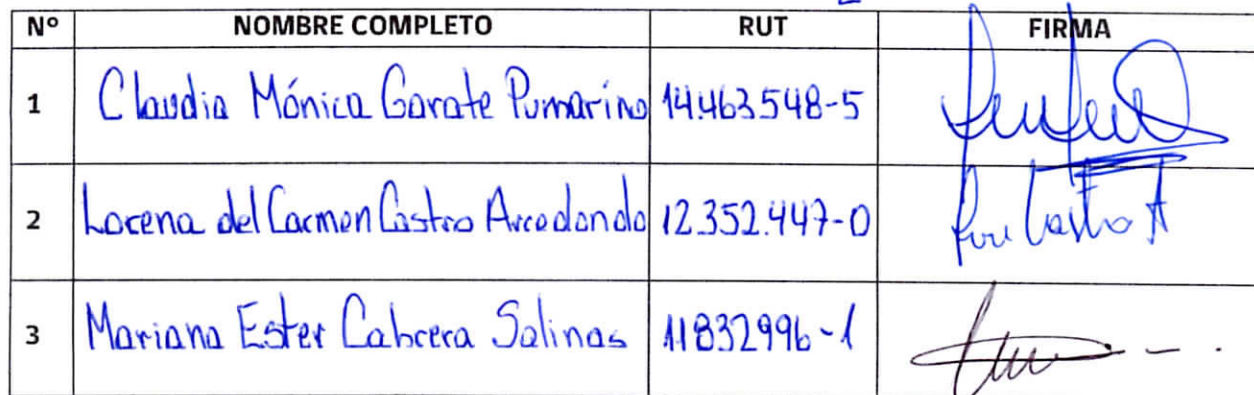 Nº NOMBRE COMPLETO RUT FIRMA
1 Claudia Mónica Garate Pumarino 14.463.548-5
2 Lorena del Carmen Castro Arredondo 12.352.447-0 Castro A
3 Mariana Ester Cabrera Salinas 11832996-1